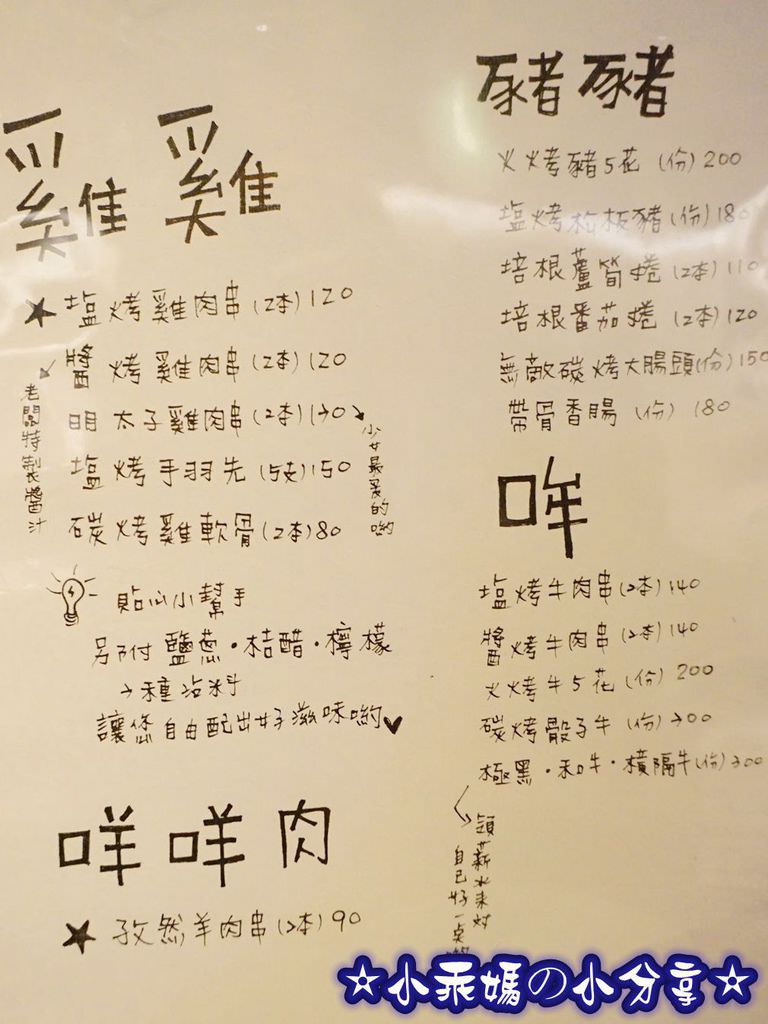 雞雞
★ 塩烤雞肉串(2本)120
醬烤雞肉串(2本)120
明太子雞肉串(2本)130
塩烤手羽先(5支)150
碳烤雞軟骨(2本)80
老闆特製醬汁
少女最愛的喲
貼心小幫手
另附鹽蔥·桔醋·檸檬
3種沾料
讓您自由配出好滋味喲♥
咩咩肉
★ 孜然羊肉串(2本)90
豬豬
火烤豬5花(份)200
塩烤松板豬(份)180
培根蘆筍捲(2本)110
培根番茄捲(2本)120
無敵碳烤大腸頭(份)150
帶骨香腸(份)180
哞
塩烤牛肉串(2本)140
醬烤牛肉串(2本)140
火烤牛5花(份)200
碳烤骰子牛(份)300
極黑·和牛·橫隔牛(份)300
領薪水來対
自己好一点
☆小乖媽の小分享☆